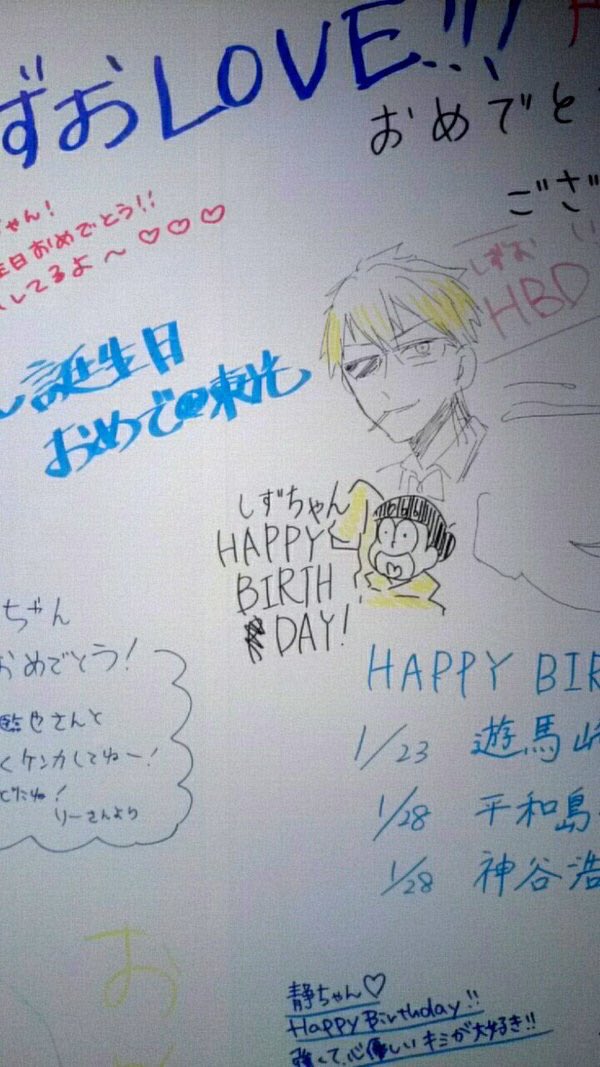 ずおLOVE!!!
おめでと
ござ
ゃん!
生日おめでとう!!
してるよ〜♡♡♡
しずお
HBD
誕生日
おめで東光
しずちゃん
HAPPY
BIRTH
DAY!
ちゃん
おめでとう!
さんと
くケンカしてねー!
りーさんより
HAPPY BIR
1/23 遊馬崎
1/28 平和島
1/28 神谷浩
お
静ちゃん♡
Happy Birthday!!
強くて、心優しいキミが大好き!!